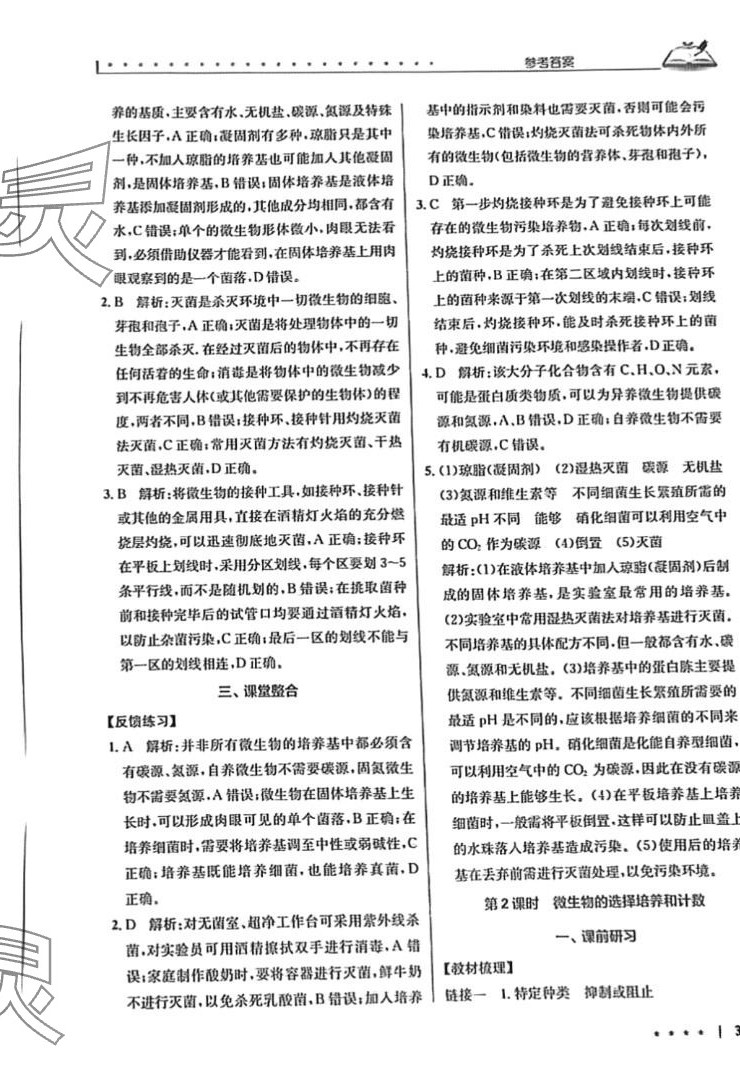 参考答案
养的基质，主要含有水、无机盐、碳源、氮源及特殊
生长因子，A 正确；凝固剂有多种，琼脂只是其中
一种，不加入琼脂的培养基也可能加入其他凝固
剂，是固体培养基，B 错误；固体培养基是液体培
养基添加凝固剂形成的，其他成分均相同，都含有
水，C 错误；单个的微生物形体微小，肉眼无法看
到，必须借助仪器才能看到，在固体培养基上用肉
眼观察到的是一个菌落，D 错误。
2. B 解析：灭菌是杀灭环境中一切微生物的细胞、
芽孢和孢子，A 正确；灭菌是将处理物体中的一切
生物全部杀灭．在经过灭菌后的物体中，不再存在
任何活着的生命；消毒是将物体中的微生物减少
到不再危害人体（或其他需要保护的生物体）的程
度，两者不同，B 错误；接种环、接种针用灼烧灭菌
法灭菌，C 正确；常用灭菌方法有灼烧灭菌、干热
灭菌、湿热灭菌，D 正确。
3. B 解析：将微生物的接种工具，如接种环、接种针
或其他的金属用具，直接在酒精灯火焰的充分燃
烧层灼烧，可以迅速彻底地灭菌，A 正确；接种环
在平板上划线时，采用分区划线，每个区要划 3～5
条平行线，而不是随机划的，B 错误；在挑取菌种
前和接种完毕后的试管口均要通过酒精灯火焰，
以防止杂菌污染，C 正确；最后一区的划线不能与
第一区的划线相连，D 正确。
三、课堂整合
【反馈练习】
1. A 解析：并非所有微生物的培养基中都必须含
有碳源、氮源，自养微生物不需要碳源，固氮微生
物不需要氮源，A 错误；微生物在固体培养基上生
长时，可以形成肉眼可见的单个菌落，B 正确；在
培养细菌时，需要将培养基调至中性或弱碱性，C
正确；培养基既能培养细菌，也能培养真菌，D
正确。
2. D 解析：对无菌室、超净工作台可采用紫外线杀
菌，对实验员可用酒精擦拭双手进行消毒，A 错
误；家庭制作酸奶时，要将容器进行灭菌，鲜牛奶
不进行灭菌，以免杀死乳酸菌，B 错误；加入培养
基中的指示剂和染料也需要灭菌，否则可能会污
染培养基，C 错误；灼烧灭菌法可杀死物体内外所
有的微生物（包括微生物的营养体、芽孢和孢子），
D 正确。
3. C 第一步灼烧接种环是为了避免接种环上可能
存在的微生物污染培养物，A 正确；每次划线前，
灼烧接种环是为了杀死上次划线结束后，接种环
上的菌种，B 正确；在第二区域内划线时，接种环
上的菌种来源于第一次划线的末端，C 错误；划线
结束后，灼烧接种环，能及时杀死接种环上的菌
种，避免细菌污染环境和感染操作者，D 正确。
4. D 解析：该大分子化合物含有 C、H、O、N 元素，
可能是蛋白质类物质，可以为异养微生物提供碳
源和氮源，A、B 错误，D 正确；自养微生物不需要
有机碳源，C 错误。
5. (1)琼脂(凝固剂) (2)湿热灭菌 碳源 无机盐
(3)氮源和维生素等 不同细菌生长繁殖所需的
最适 pH 不同 能够 硝化细菌可以利用空气中
的 CO₂ 作为碳源 (4)倒置 (5)灭菌
解析：(1)在液体培养基中加入琼脂(凝固剂)后制
成的固体培养基，是实验室最常用的培养基。
(2)实验室中常用湿热灭菌法对培养基进行灭菌。
不同培养基的具体配方不同，但一般都含有水、碳
源、氮源和无机盐。(3)培养基中的蛋白胨主要提
供氮源和维生素等。不同细菌生长繁殖所需的
最适 pH 是不同的，应该根据培养细菌的不同来
调节培养基的 pH。硝化细菌是化能自养型细菌，
可以利用空气中的 CO₂ 为碳源，因此在没有碳源
的培养基上能够生长。(4)在平板培养基上培养
细菌时，一般需将平板倒置，这样可以防止皿盖上
的水珠落入培养基造成污染。(5)使用后的培养
基在丢弃前需进行灭菌处理，以免污染环境。
第 2 课时 微生物的选择培养和计数
一、课前研习
【教材梳理】
链接一 1. 特定种类 抑制或阻止
3
灵
灵